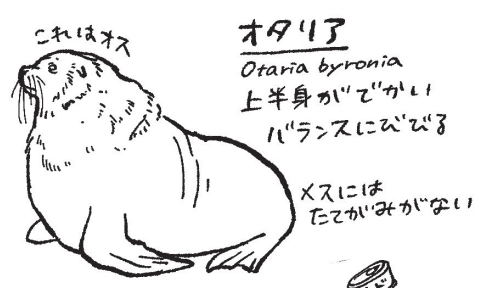 これはオス
オタリア
Otaria byronia
上半身がでかい
バランスにびびる
メスには
たてがみがない